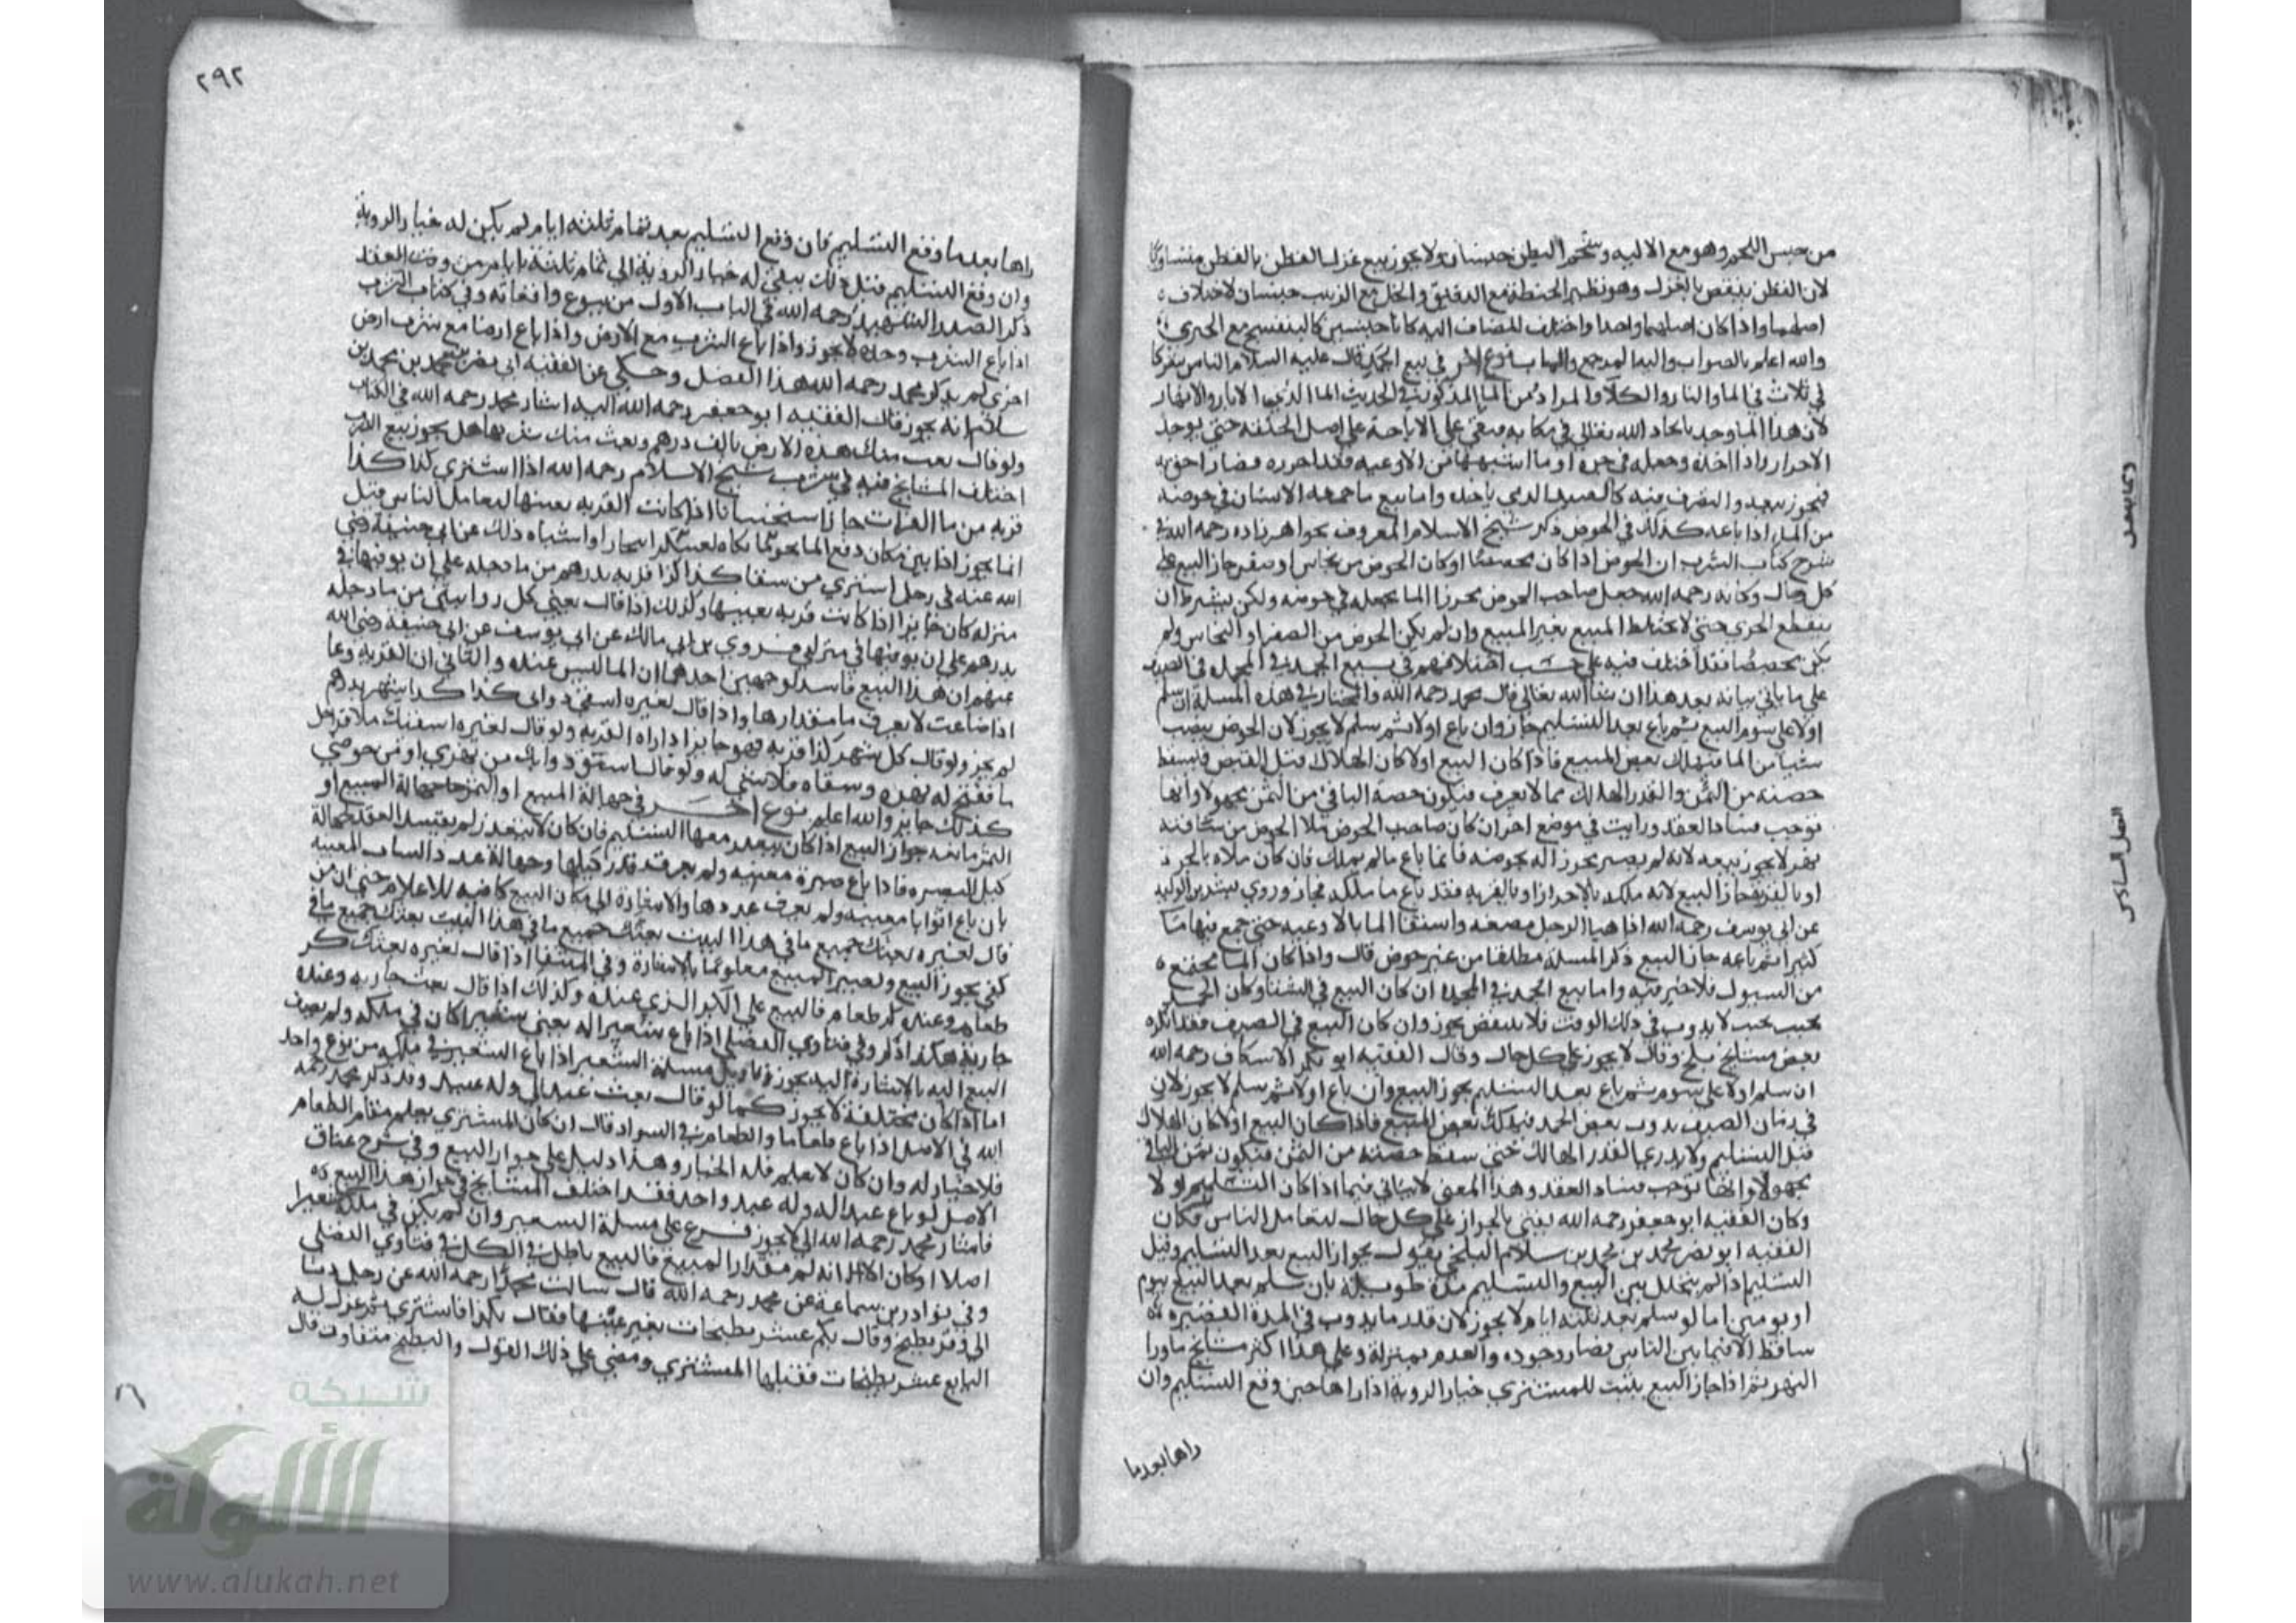 من جنس اللحم وهو مع الالية وشحم البطن جنسان ولا يجوز بيع غزل القطن بالقطن متساويا
لان القطن ينقص بالغزل وهو نظير الحنطة مع الدقيق والخل مع الزبيب جنسان لاختلاف
اصلهما واذا كان اصلهما واحدا واختلف المضاف اليه كانا جنسين كالبنفسج مع الخيري
والله اعلم بالصواب واليه المرجع والماب نوع اخر في بيع الجمد قال عليه السلام الناس شركا
في ثلاث في الما والنار والكلا والمراد من الما المذكور في الحديث الما الذي في الابار والانهار
لان هذا الما وجد بايجاد الله تعالى في مكانه فبقي على الاباحة على اصل الخلقة حتى يوجد
الاحراز واذا اخذه وجعله في جره او ما اشبهها من الاوعيه فقد احرزه فصار احق به
فيجوز بيعه والتصرف فيه كالصيد الذي ياخذه واما بيع ما جمعه الانسان في حوضه
من الما اذا باعه كذلك في الحوض ذكر شيخ الاسلام المعروف بخواهر زاده رحمه الله في
شرح كتاب الشرب ان الحوض اذا كان مجصصا او كان الحوض من نحاس او صفر جاز البيع على
كل حال وكانه رحمه الله جعل صاحب الحوض محرزا الما بجعله في حوضه ولكن يشترط ان
ينقطع الجري حتى لا يختلط المبيع بغير المبيع وان لم يكن الحوض من الصفر او النحاس ولم
يكن مجصصا فقد اختلف فيه على حسب اختلافهم في بيع الجمد في المجمده في الصيف
على ما ياتي بيانه بعد هذا ان شا الله تعالى قال محمد رحمه الله والمختار في هذه المسلة ان سلم
اولا على سوم البيع ثم باع بعد التسليم جاز وان باع اولا ثم سلم لا يجوز لان الحوض ينصب
شيا من الما فيهلك بعض المبيع فاذا كان البيع اولا كان الهلاك قبل القبض فيسقط
حصته من الثمن والقدر الهالك مما لا يعرف فيكون حصة الباقي من الثمن مجهولا وانها
توجب فساد العقد ورايت في موضع اخر ان كان صاحب الحوض ملا الحوض من ساقية
نهر لا يجوز بيعه لانه لم يصر محرزا له بحوضه فانما باع مالم يملك فان كان ملاه بالجره
او بالقربة جاز البيع لانه ملكه بالاحراز او بالقربه فقد باع ما ملكه فجاز وروي بشر بن الوليد
عن ابي يوسف رحمه الله اذا هيا الرجل مصنعه واستقا الما بالاوعيه حتى جمع فيها ما
كثيرا ثم باعه جاز البيع ذكر المسلة مطلقا من غير حوض قال واذا كان الما مجتمع
من السيول فلا خير فيه واما بيع الجمد في المجمده ان كان البيع في الشتا وكان الجمد
بحيث لا يذوب في ذلك الوقت فلا ينتقض يجوز وان كان البيع في الصيف فقد انكره
بعض مشايخ بلخ وقال لا يجوز على كل حال وقال الفقيه ابو بكر الاسكاف رحمه الله
ان سلم اولا على سوم ثم باع بعد التسليم يجوز البيع وان باع اولا ثم سلم لا يجوز لان
في زمان الصيف يذوب بعض الجمد فيهلك بعض المبيع فاذا كان البيع اولا كان الهلاك
قبل التسليم ولا يدري القدر الهالك حتى سقط حصته من الثمن فيكون ثمن الباقي
مجهولا وانها توجب فساد العقد وهذا المعنى لا ياتي فيما اذا كان التسليم اولا
وكان الفقيه ابو جعفر رحمه الله يفتي بالجواز على كل حال لتعامل الناس فكان
الفقيه ابو نصر محمد بن محمد بن سلام البلخي يقول بجواز البيع بعد التسليم وقبل
التسليم اذا لم يتخلل بين البيع والتسليم مدة طويلة بان سلم بعد البيع بيوم
او يومين اما لو سلم بعد ثلثة ايام لا يجوز لان قدر ما يذوب في المدة القصيره
ساقط الاعتبار بين الناس فصار وجوده والعدم بمنزلة وعلى هذا اكثر مشايخ ماورا
النهر ثم اذا جاز البيع يثبت للمشتري خيار الروية اذا راها حين وقع التسليم وان
راها بعد ما
٢٩٢
راها بعد ما وقع التسليم فان وقع التسليم بعد تمام ثلثه ايام لم يكن له خيار الروية
وان وقع التسليم قبل ذلك يبقى له خيار الروية الى تمام ثلثة ايام من وقت العقد
ذكر الصدر الشهيد رحمه الله في الباب الاول من بيوع واقعاته وفي كتاب الشرب
اذا باع الشرب وحده لا يجوز واذا باع الشرب مع الارض واذا باع ارضا مع شرب ارض
اخرى لم يذكر محمد رحمه الله هذا الفصل وحكي عن الفقيه ابي نصر محمد بن محمد بن
سلام انه يجوز قال الفقيه ابو جعفر رحمه الله اليه اشار محمد رحمه الله في الكتاب
ولو قال بعت منك هذه الارض بالف درهم وبعت منك شربها هل يجوز بيع الشرب
اختلف المشايخ فيه في شرب شيخ الاسلام رحمه الله اذا اشترى كذا كذا
قربه من ما الفرات جاز استحسانا اذا كانت القربه بعينها لتعامل الناس قيل
انما يجوز اذا بين مكان دفع الما
الله عنه في رجل اشترى من سقا كذا كذا قربه بدرهم من ما دجله على ان يوفيها في
منزله كان جايزا اذا كانت قربه بعينها وكذلك اذا قال بعني كل راويتي من ما دجله
بدرهم على ان يوفيها في منزلي وروي بن ابي مالك عن ابي يوسف عن ابي حنيفة رضى الله
عنهم ان هذا البيع فاسد لوجهين احدهما ان الما ليس عنده والثاني ان القربه وعا
اذا ضاعت لا يعرف ما مقدارها واذا قال لغيره اسقي دوابي كذا كذا شهر بدرهم
لم يجز ولو قال كل شهر كذا قربه فهو جايز اذا اراه القربه ولو قال لغيره اسقيك ملا قراحك
ما ففتح له نهره وسقاه فلا شي له ولو قال استق دوابك من نهري او من حوضي
كذلك جايز والله اعلم نوع اخر في جهالة المبيع او الثمن جهالة المبيع او
الثمن مانعة جواز البيع اذا كان يتعذر معها التسليم فان كان لا يتعذر لم يفسد العقد كجهالة
كيل الصبره فاذا باع صبرة معينه ولم يعرف قدر كيلها وجهالة عدد الثياب المعينه
بان باع اثوابا معينه ولم يعرف عددها والاشارة الى مكان البيع كافيه للاعلام حتى ان من
قال لغيره بعتك جميع ما في هذا البيت بعتك جميع ما في
كفي يجوز البيع ويصير المبيع معلوما بالاشارة وفي المنتقى اذا قال لغيره بعتك كر
طعام وعنده كر طعام فالبيع على الكر الذي عنده وكذلك اذا قال بعت جارية وعنده
جارية هكذا ذكر وفي فتاوي الفضلي اذا باع شعيرا له يعني شعيرا كان في ملكه ولم يصف
البيع اليه بالاشارة اليه يجوز وتاويل مسلة الشعير اذا باع الشعير في ملكه من نوع واحد
اما اذا كان مختلفة لا يجوز كما لو قال بعت عبدا لي وله عبيد وقد ذكر محمد رحمه
الله في الاصل اذا باع طعاما والطعام في السواد قال ان كان المشتري يعلم مقام الطعام
فلا خيار له وان كان لا يعلم فله الخيار وهذا دليل على جواز البيع وفي شرح عتاق
الاصل لو باع عبدا له وله عبد واحد فقد اختلف المشايخ في جواز هذا البيع
فاشار محمد رحمه الله الى لا يجوز فرع على مسلة الشعير وان لم يكن في ملكه شعيرا
اصلا او كان الا انه لم مقدار المبيع فالبيع باطل في الكل في فتاوي الفضلي
وفي نوادر بن سماعة عن محمد رحمه الله قال سالت محمدا رحمه الله عن رجل دنا
الى وقر بطيخ وقال بكم عشر بطيخات بغير عينها فقال بكذا فاشترى ثم عزل له
البايع عشر بطيخات فقبلها المشتري ومضى على ذلك القول والبطيخ متفاوت قال
شبكة
الألوكة
www.alukah.net